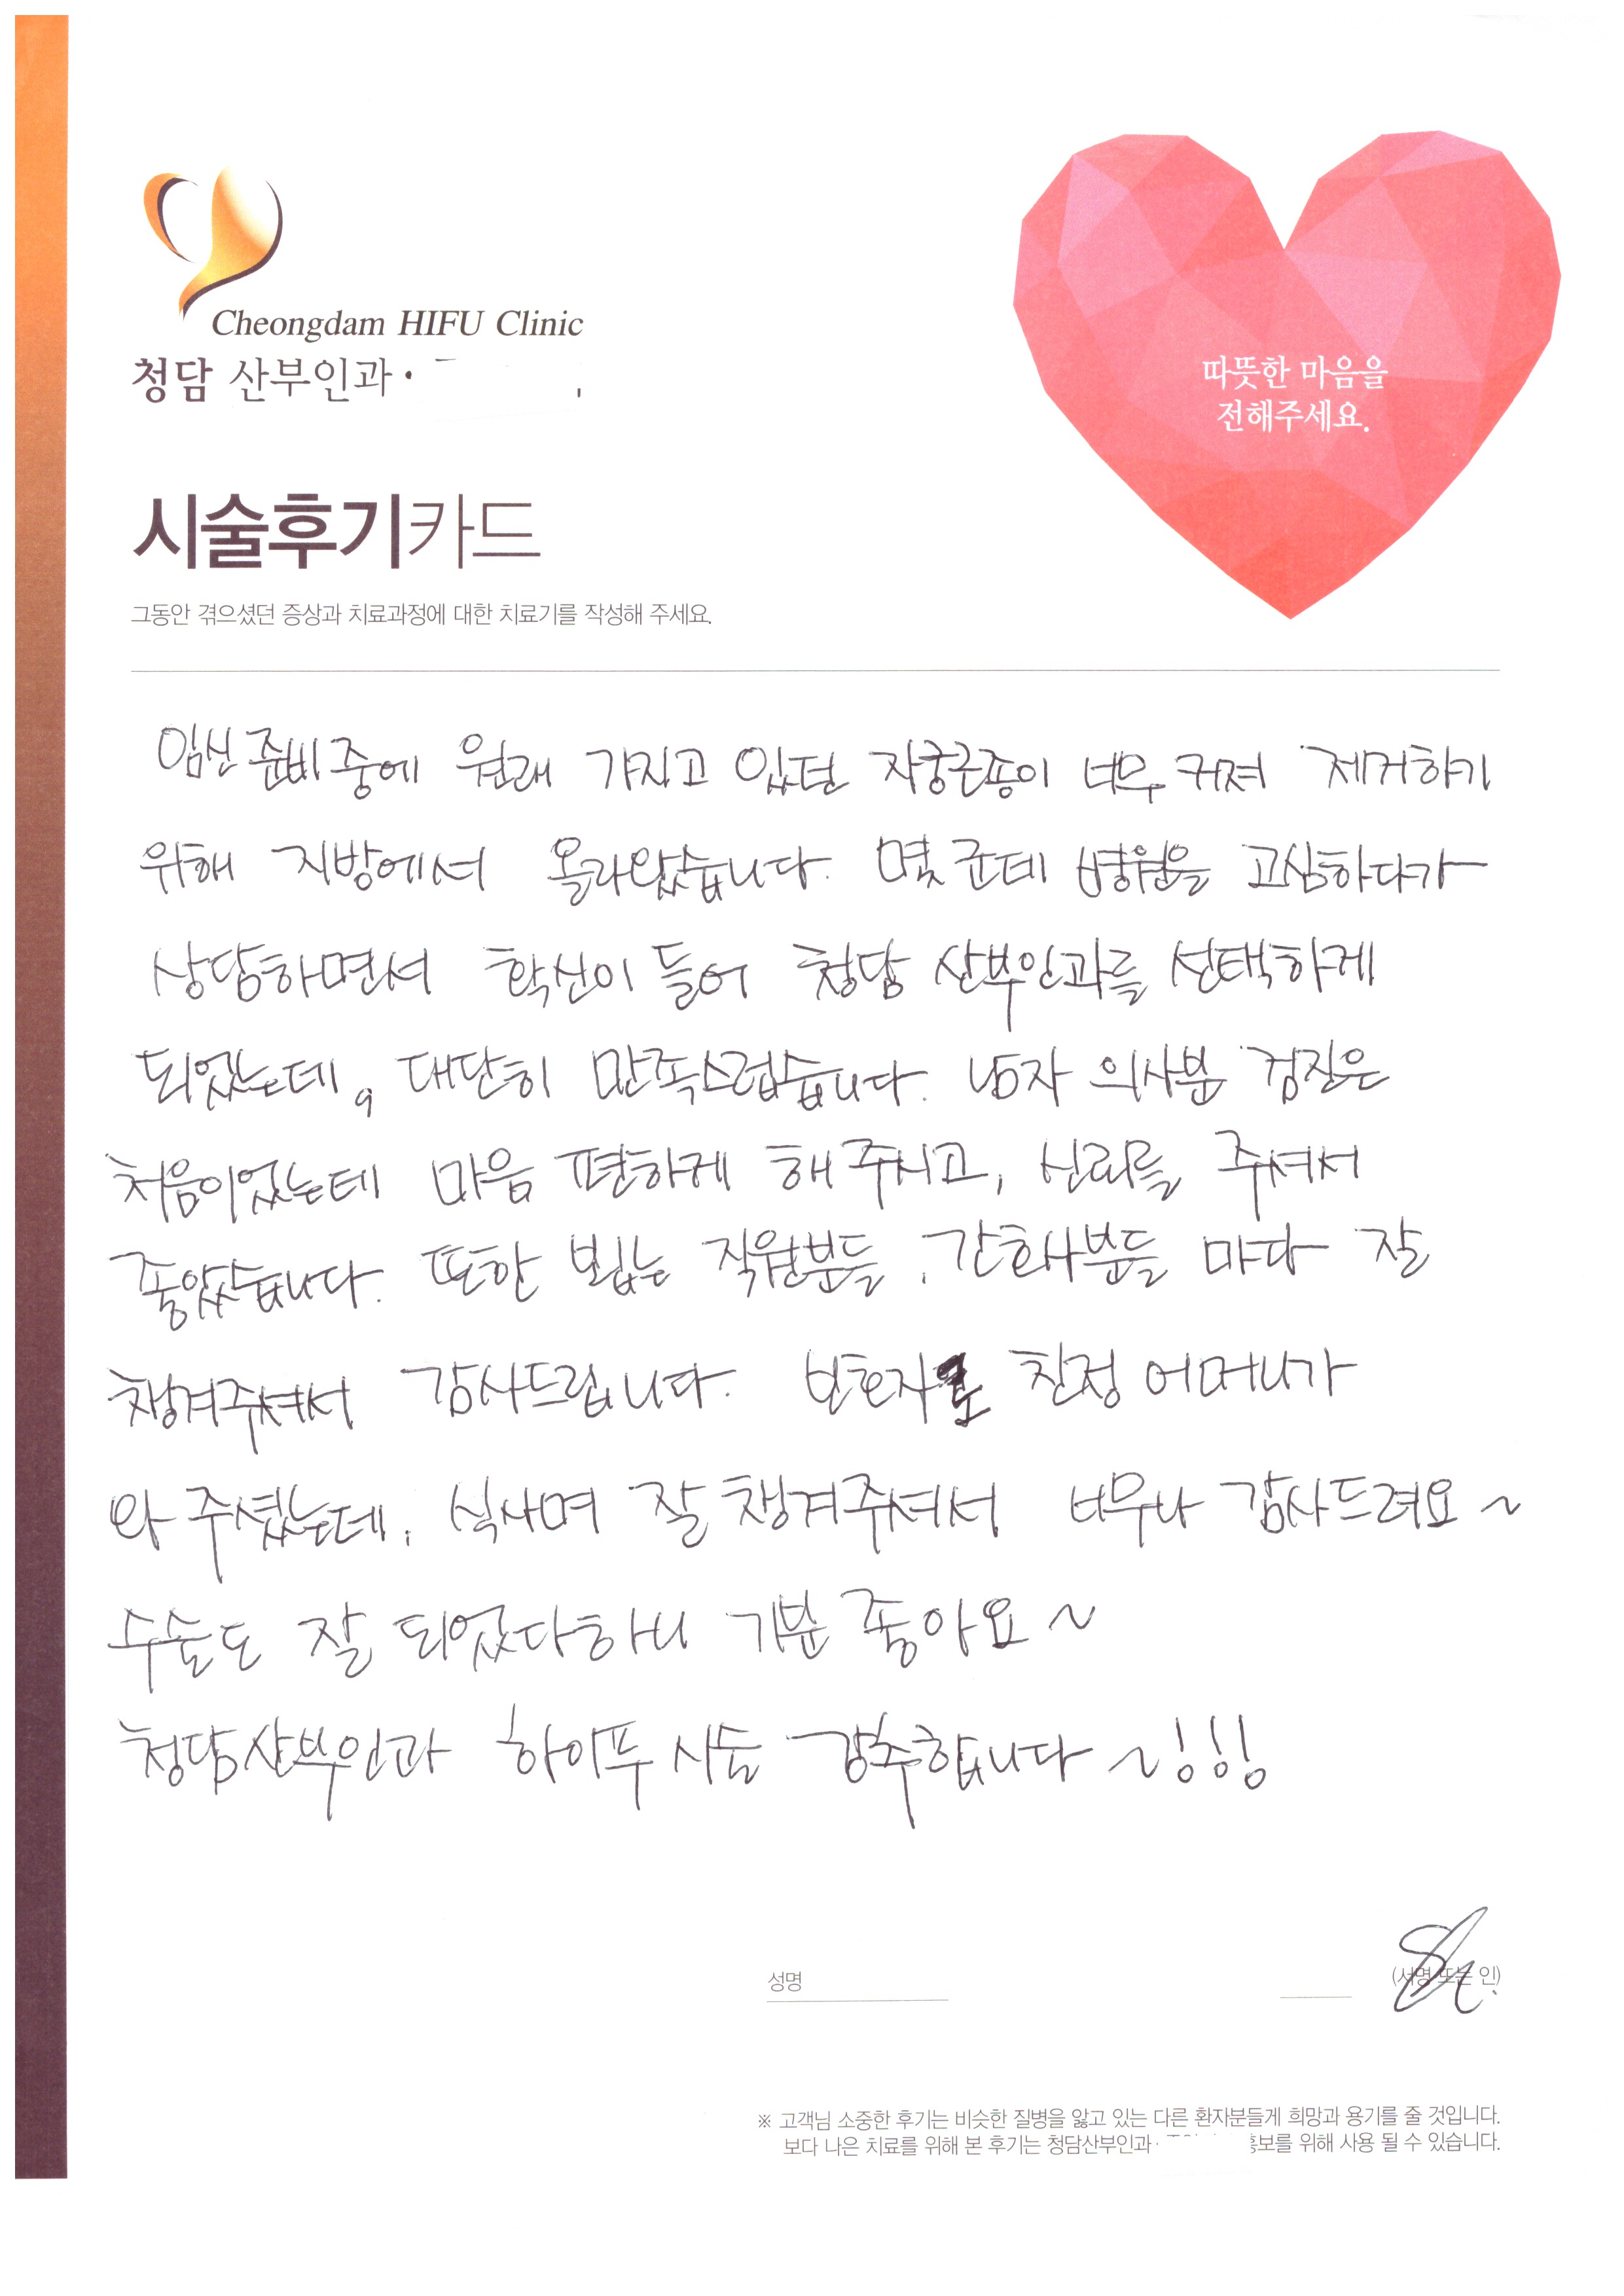 Cheongdam HIFU Clinic
청담 산부인과·
따뜻한 마음을
전해주세요.
시술후기카드
그동안 겪으셨던 증상과 치료과정에 대한 치료기를 작성해 주세요.
임신 준비 중에 원래 가지고 있던 자궁근종이 너무 커져 제거하기
위해 지방에서 올라왔습니다. 몇 군데 병원을 고심하다가
상담하면서 확신이 들어 청담 산부인과를 선택하게
되었는데, 대단히 만족스럽습니다. 남자 의사분 검진은
처음이었는데 마음 편하게 해 주시고, 신뢰를 주셔서
좋았습니다. 또한 뵙는 직원분들, 간호사분들 마다 잘
챙겨주셔서 감사드립니다. 보호자로 친정 어머니가
와 주셨는데, 식사며 잘 챙겨주셔서 너무나 감사드려요~
수술도 잘 되었다하니 기분 좋아요~
청담산부인과 하이푸 시술 강추합니다~!!!
성명 (서명 또는 인)
※ 고객님 소중한 후기는 비슷한 질병을 앓고 있는 다른 환자분들게 희망과 용기를 줄 것입니다.
보다 나은 치료를 위해 본 후기는 청담산부인과· 홍보를 위해 사용 될 수 있습니다.